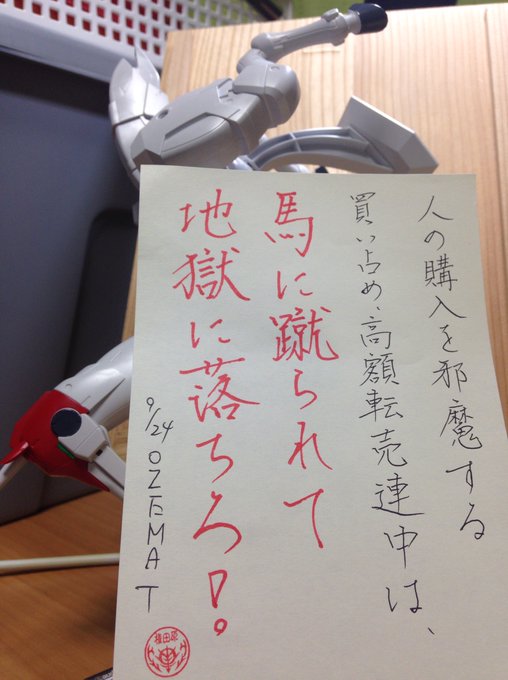 人の購入を邪魔する
買い占め、高額転売連中は、
馬に蹴られて
地獄に落ちろ!。
9/24 OZEMAT